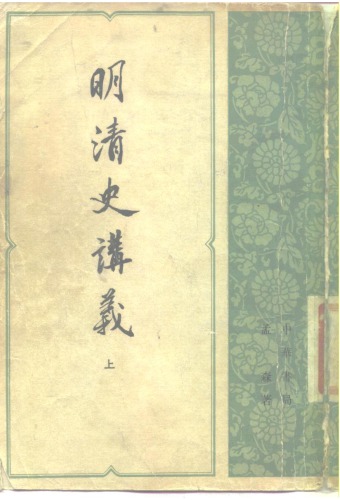 明清史講義
上
中華書局
孟森著